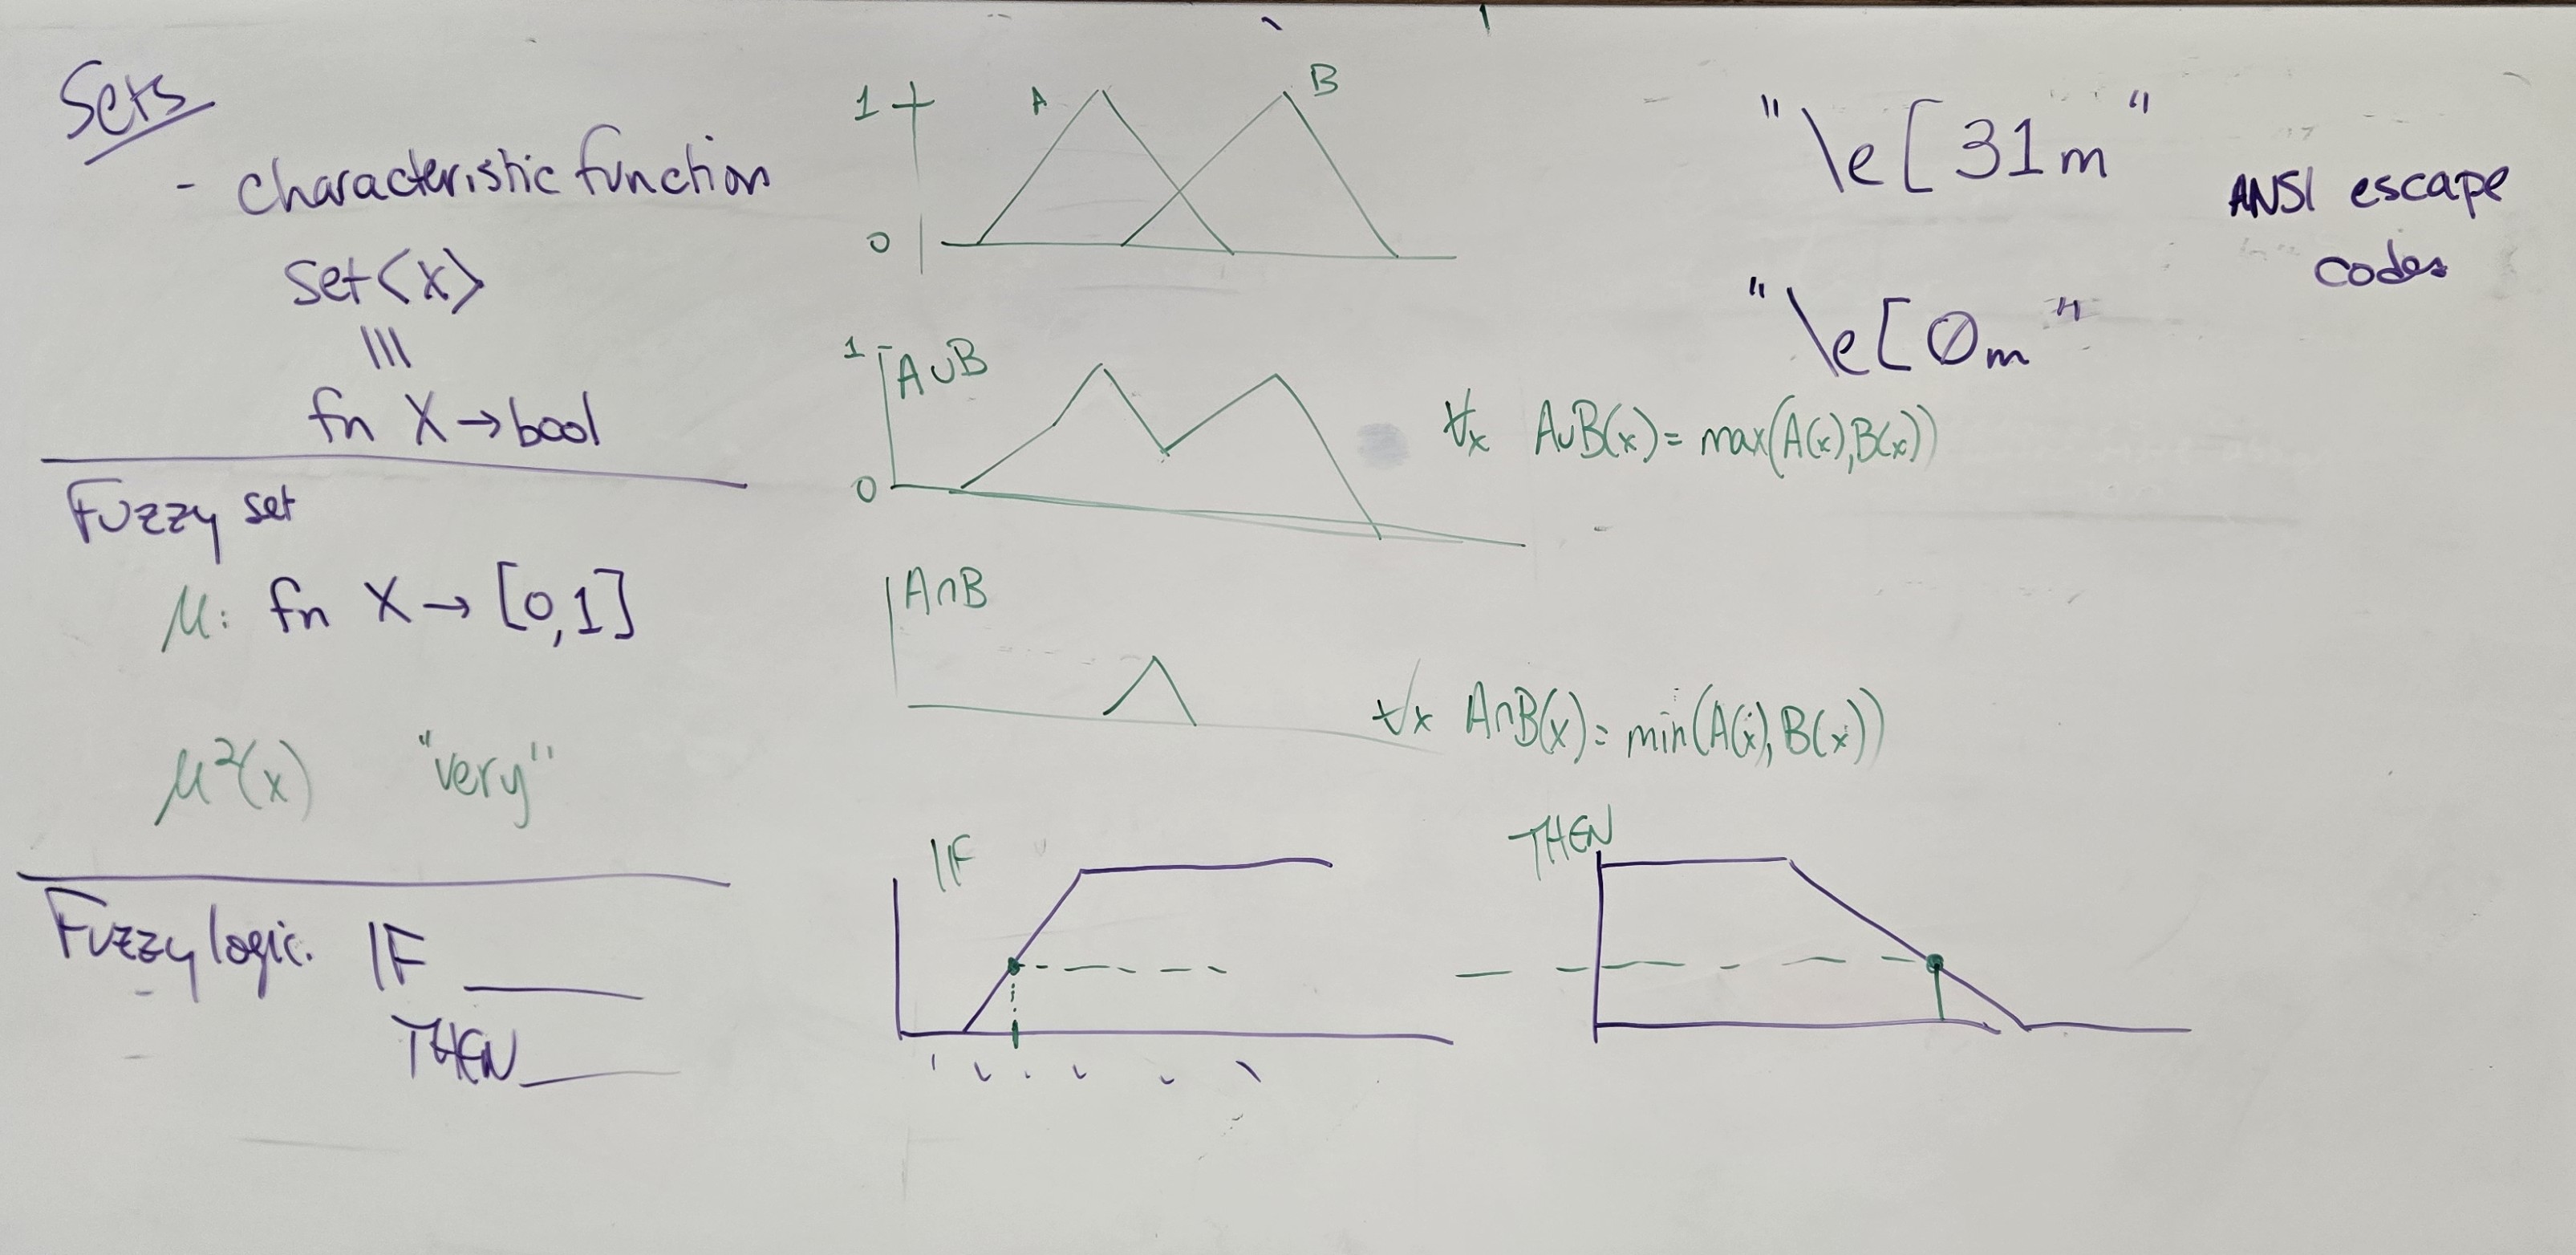 Sets
- characteristic function
set<X>
|||
fn X→bool
Fuzzy set
μ: fn X→[0,1]
μ²(x) "very"
Fuzzy logic. IF ____
THEN ____
1
A
B
0
1
A∪B
0
∀x A∪B(x)=max(A(x),B(x))
A∩B
∀x A∩B(x)=min(A(x),B(x))
IF
THEN
"\e[31m"
ANSI escape
codes
"\e[0m"